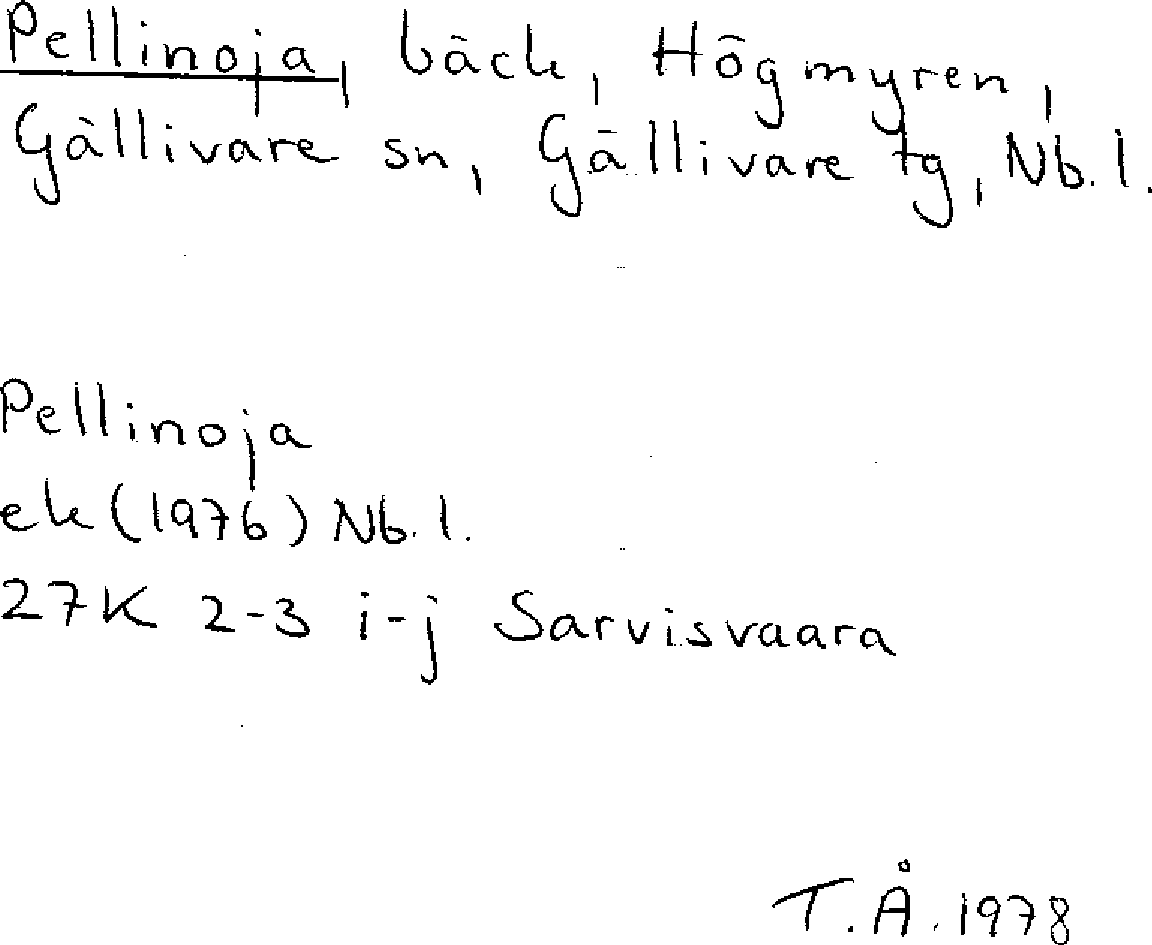 Pellinoja, bäck, Högmyren,
Gällivare sn, Gällivare tg, Nb.l.
Pellinoja
ek (1976) Nb.l.
27K 2-3 i-j Sarvisvaara
T.Å. 1978